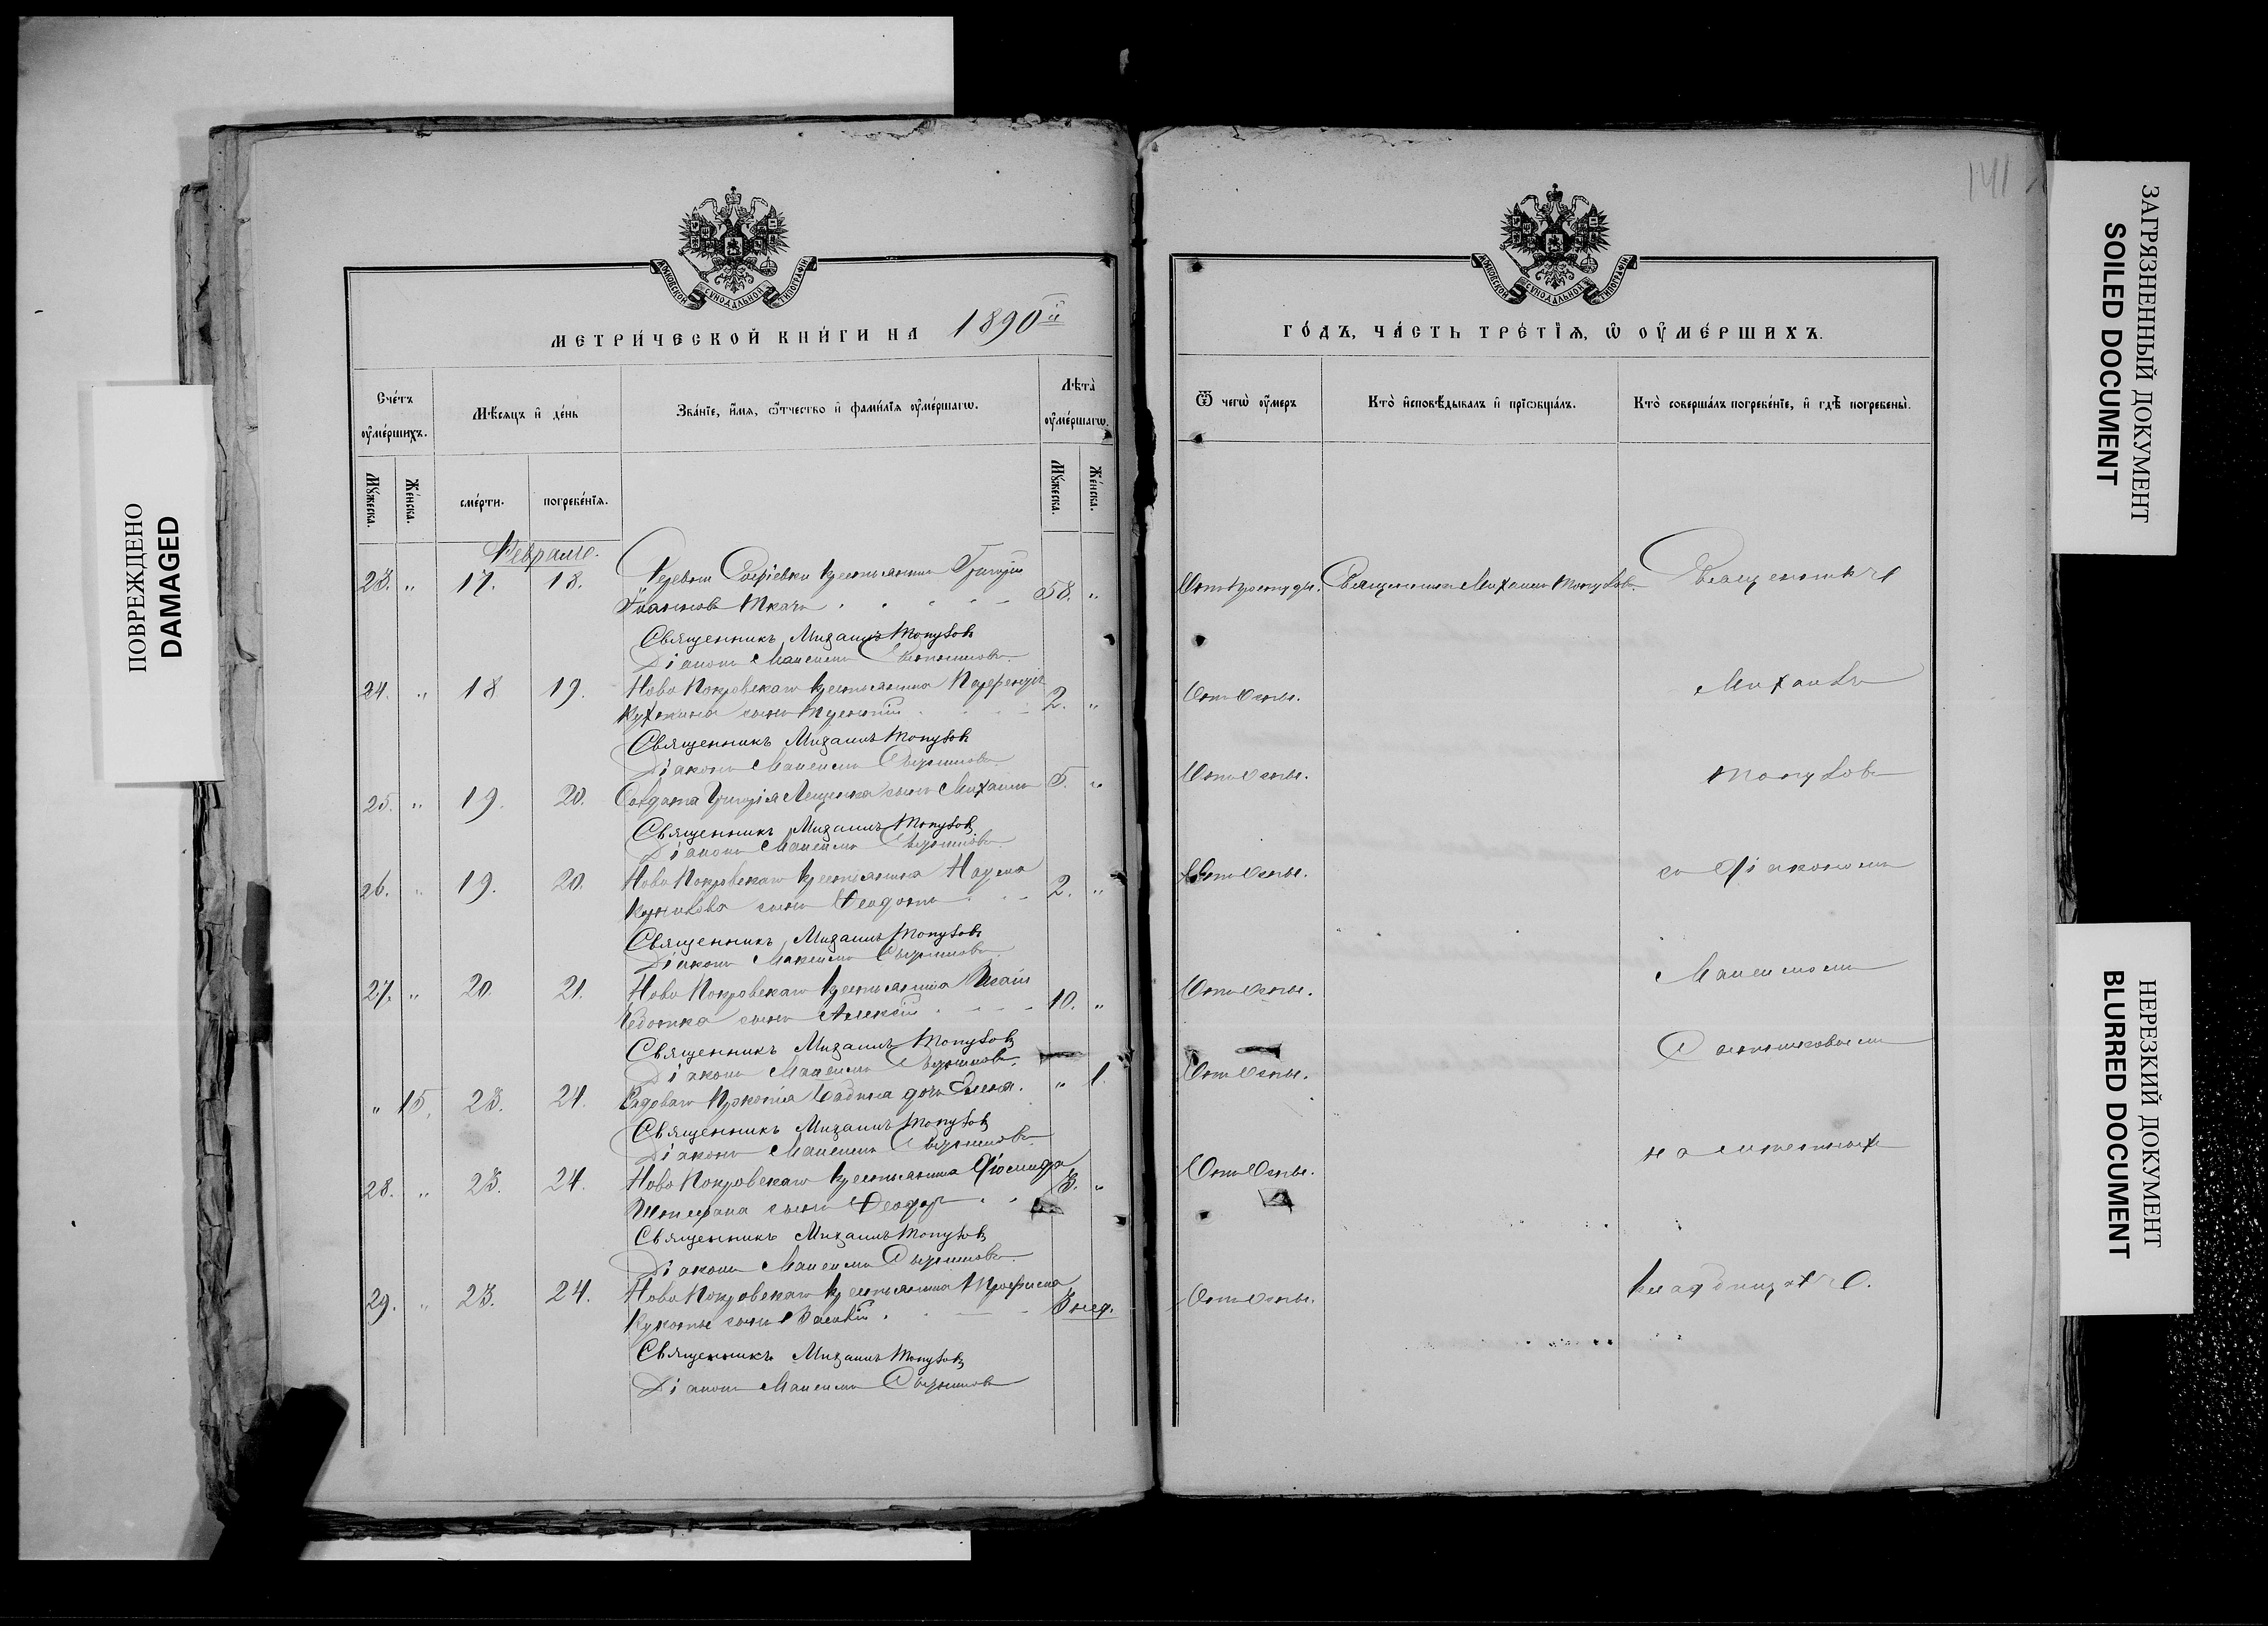 ПОВРЕЖДЕНО
DAMAGED
МОСКОВСКОЙ СѴНОДАЛЬНОЙ ТИПОГРАФІИ
МЕТРИ́ЧЕСКОЙ КНИ́ГИ НА 1890й
Сче́тъ ᲂу҆ме́ршихъ.
Мѣ́сяцъ и҆ де́нь
Зва́нїе, и҆́мя, ѻ҆́тчество и҆ фами́лїя ᲂу҆ме́ршагѡ.
Лѣ́та ᲂу҆ме́ршагѡ.
Мꙋ́жеска.
Же́нска.
сме́рти.
погребе́нїя.
Мꙋ́жеска.
Же́нска.
Февраль.
23. „ 17. 18. Деревни Софіевки крестьянинъ Григорій
Іоанновъ Ткачъ 58. „
Священникъ Михаилъ Топузовъ
Діаконъ Максимъ
24. „ 18 19. Ново Покровскаго крестьянина
сынъ 2. „
Священникъ Михаилъ Топузовъ
Діаконъ Максимъ
25. „ 19. 20. Солдата Григорія Лещенка сынъ Михаилъ 5. „
Священникъ Михаилъ Топузовъ
Діаконъ Максимъ
26. „ 19. 20. Ново Покровскаго крестьянина Наума
сынъ Ѳеодотъ 2. „
Священникъ Михаилъ Топузовъ
Діаконъ Максимъ
27. „ 20. 21. Ново Покровскаго крестьянина
сынъ Алексій 10. „
Священникъ Михаилъ Топузовъ
Діаконъ Максимъ
„ 15. 23. 24. Прокопія дочь Елена. „ 1.
Священникъ Михаилъ Топузовъ
Діаконъ Максимъ
28. „ 23. 24. Ново Покровскаго крестьянина
сынъ Ѳеодоръ 3. „
Священникъ Михаилъ Топузовъ
Діаконъ Максимъ
29. „ 23. 24. Ново Покровскаго крестьянина Трофима
сынъ Василій. 3 нед.
Священникъ Михаилъ Топузовъ
Діаконъ Максимъ
141
МОСКОВСКОЙ СѴНОДАЛЬНОЙ ТИПОГРАФІИ
ГО́ДЪ, ЧА́СТЬ ТРЕ́ТЇЯ, Ѡ҆ ОУ҆МЕ́РШИХЪ.
Ѿ чегѡ̀ ᲂу҆́меръ
Кто̀ и҆сповѣ́дывалъ и҆ прїѡбща́лъ.
Кто̀ соверша́лъ погребе́нїе, и҆ гдѣ̀ погребены̀.
Отъ простуды. Священникъ Михаилъ Топузовъ. Священникъ
Отъ Оспы. Михаилъ
Отъ Оспы. Топузовъ
Отъ Оспы. съ Діакономъ
Отъ Оспы. Максимомъ
Отъ Оспы.
Отъ Оспы. на мѣстномъ
Отъ Оспы. кладбищѣ.
ЗАГРЯЗНЕННЫЙ ДОКУМЕНТ
SOILED DOCUMENT
НЕРЕЗКИЙ ДОКУМЕНТ
BLURRED DOCUMENT